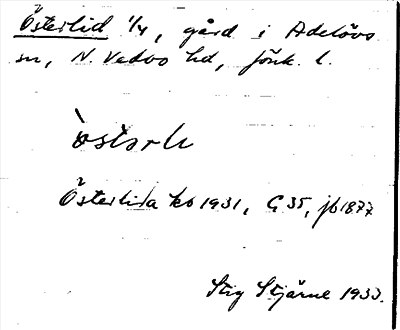 Österlid 1/4, gård i Adelövs
sn, N. Vedbo hd, Jönk. l.
Österlida kb 1931, G 35, jb 1877
Stig Stjärne 1933.